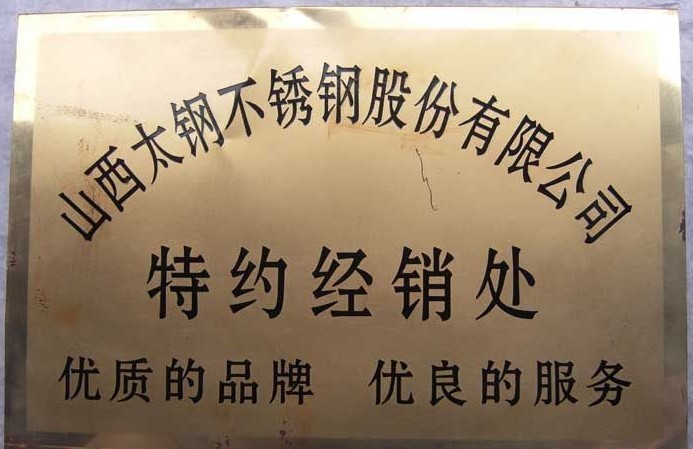 山西太钢不锈钢股份有限公司
特约经销处
优质的品牌 优良的服务